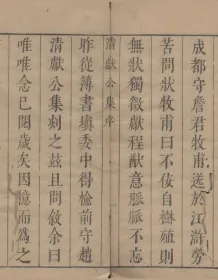 成都守詹君牧甫送於江滸勞
苦問狀牧甫曰不佞自樹殖則
無狀獨徵獻程猷意脈脈不忘
清獻公集序
昨從簿書填委中得檢前守趙
清獻公集刻之茲且問敘余曰
唯唯念已閱歲矣因憶而為之